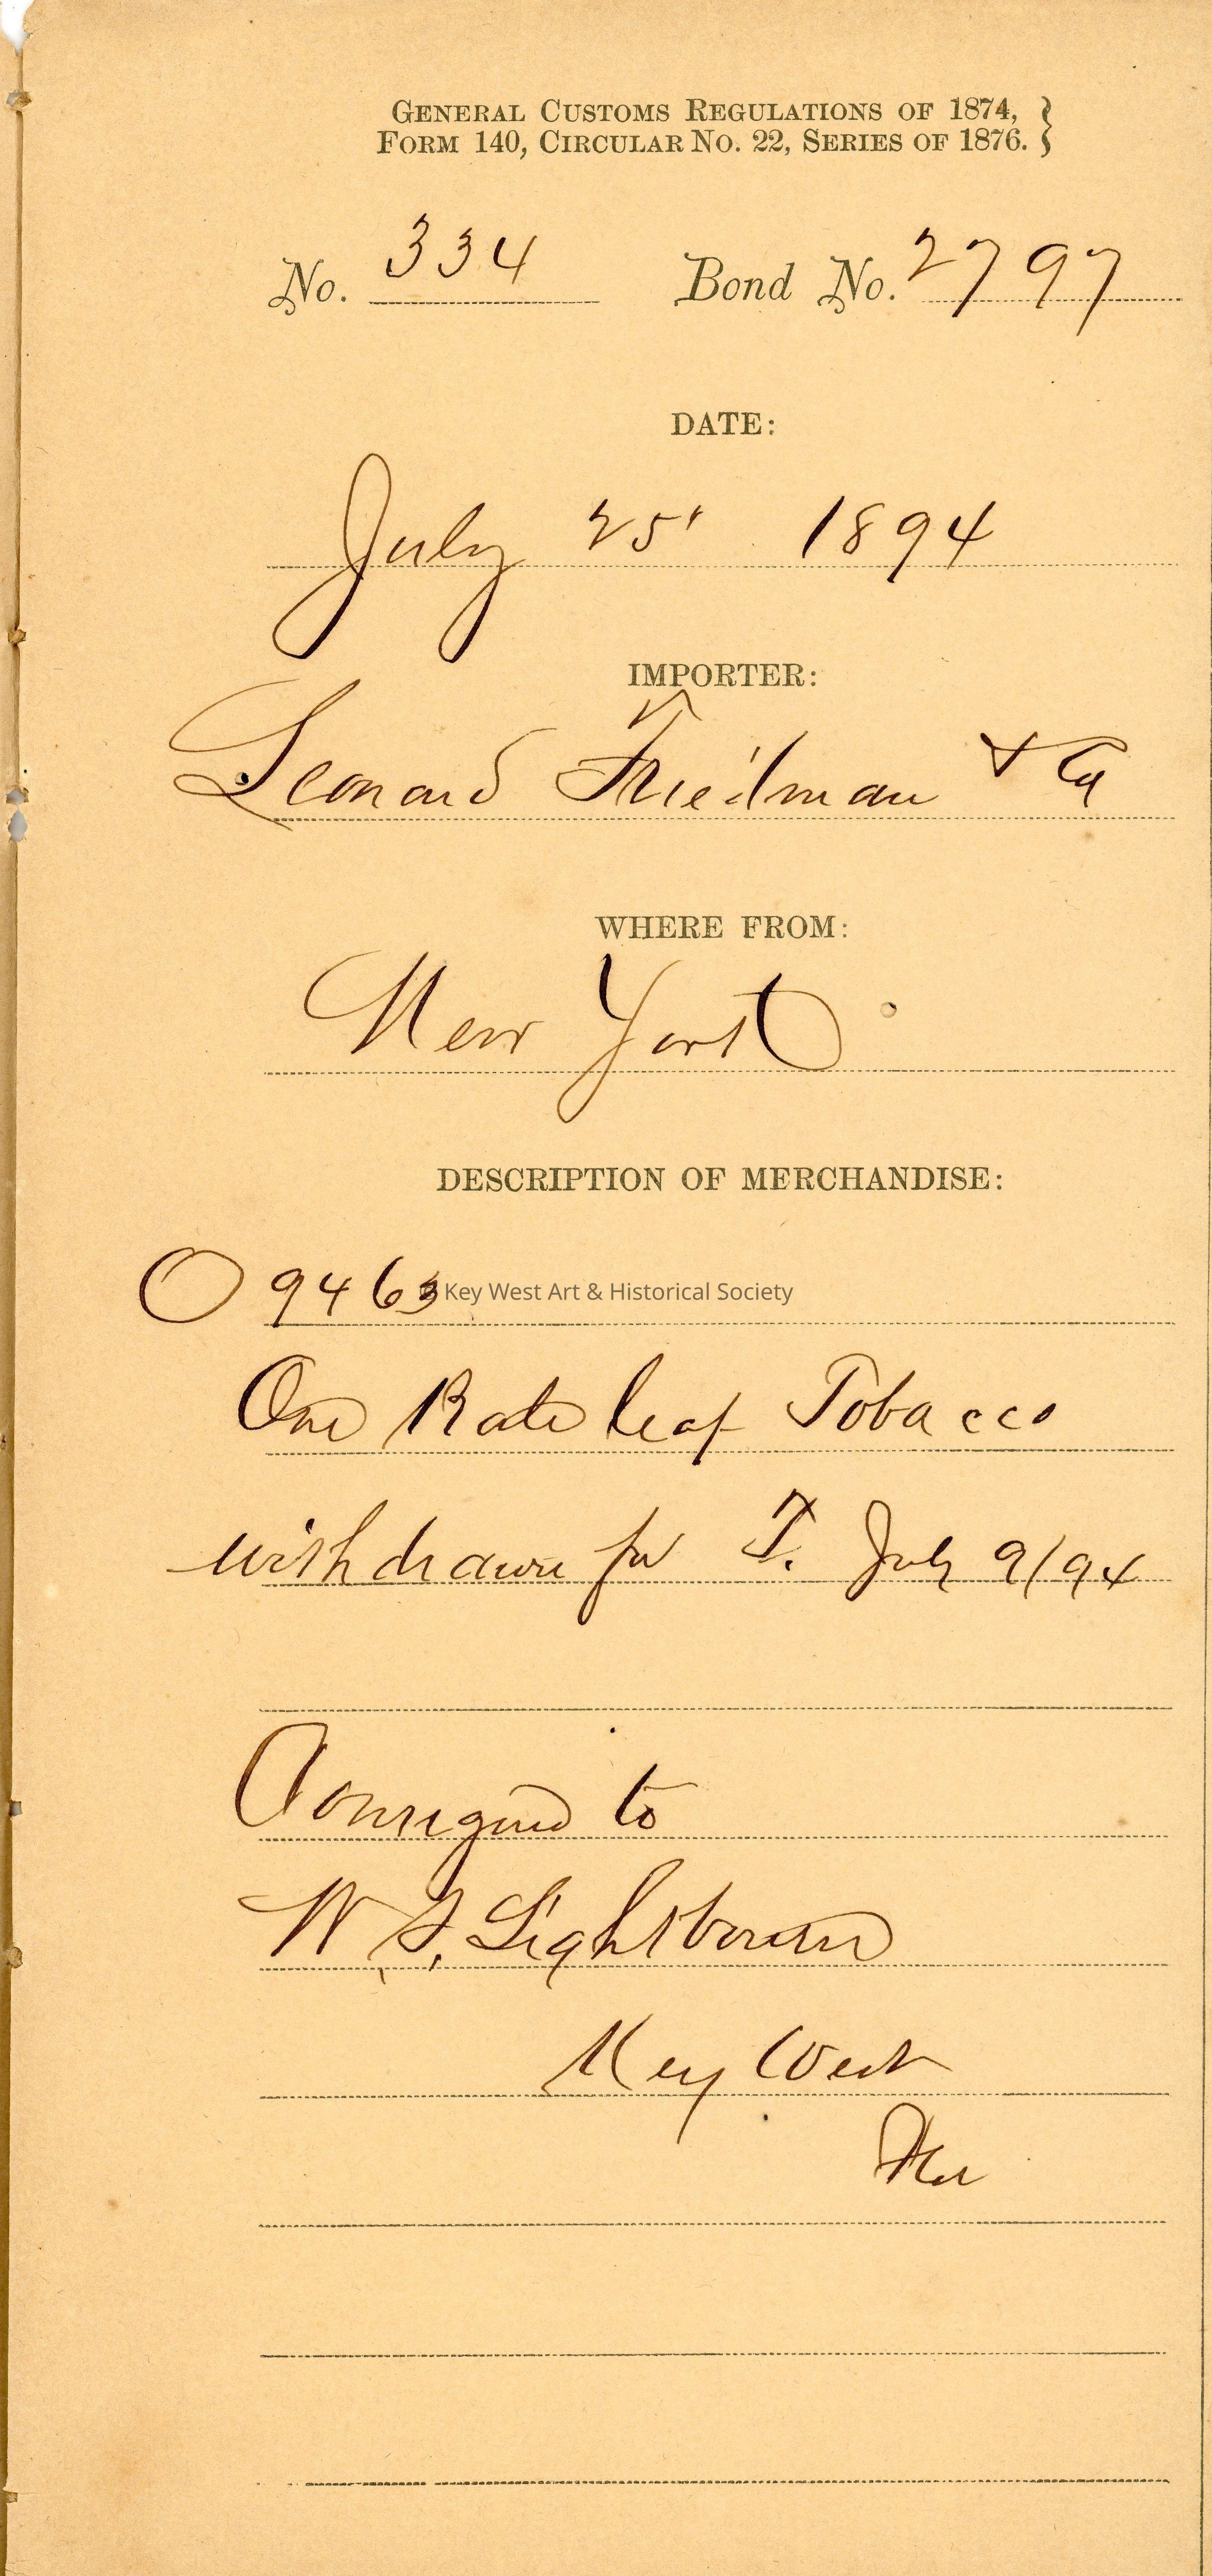 GENERAL CUSTOMS REGULATIONS OF 1874, }
FORM 140, CIRCULAR NO. 22, SERIES OF 1876. }
No. 334 Bond No. 2797
DATE:
July 25' 1894
IMPORTER:
Leonard Friedman & Co
WHERE FROM:
New York
DESCRIPTION OF MERCHANDISE:
9463
© Key West Art & Historical Society
One Bale leaf Tobacco
withdrawn for T. July 9/94
Consigned to
W. Lightbourn
Key West
Fla